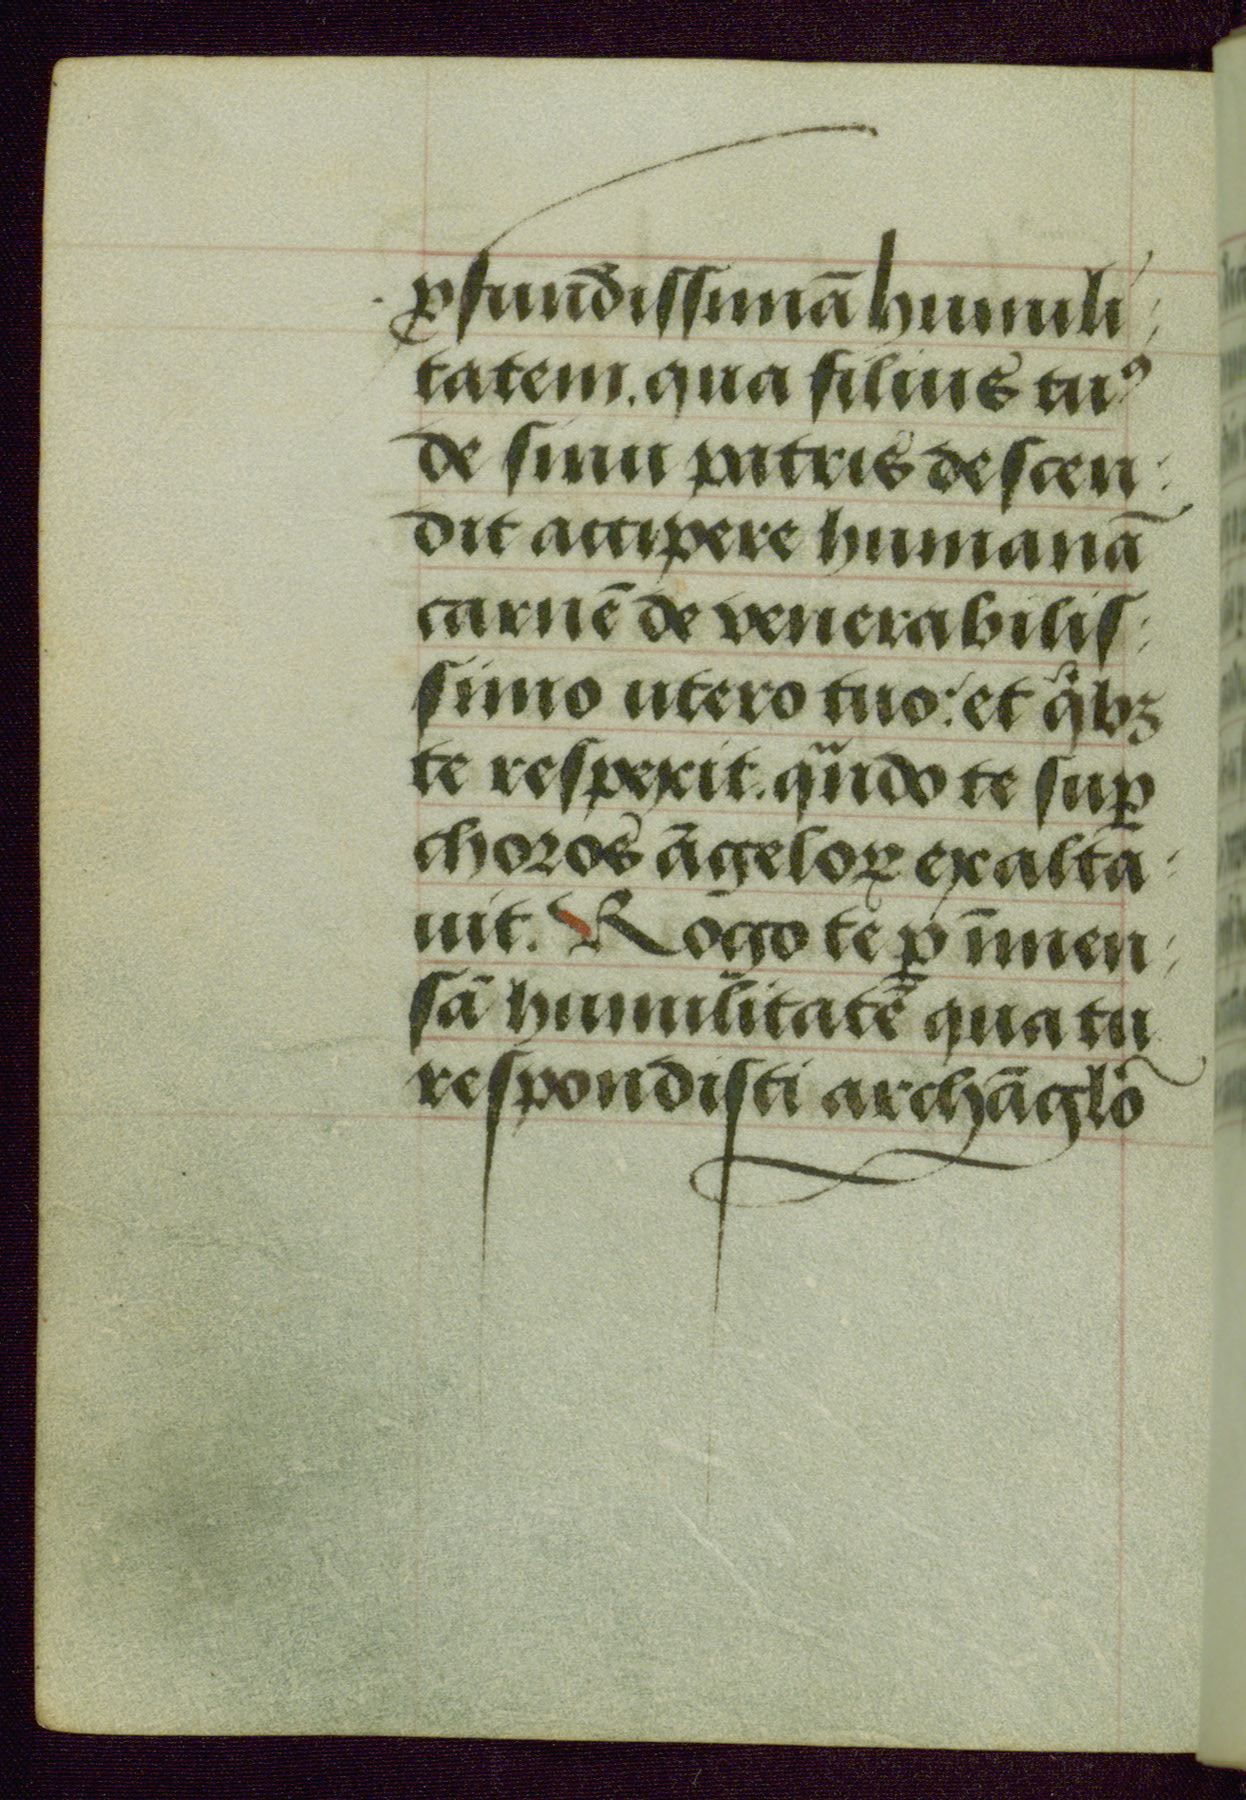 ꝓfundissimā humili
tatem. qua filius tuꝰ
de sinu patris descen
dit accipere humanā
carnē de venerabilis
simo utero tuo: et qͥbꝫ
te respexit. qn̄do te suꝑ
choros āgeloꝝ exalta
uit. Rogo te ꝑ īmen
sā humilitatē qua tu
respondisti archāglo